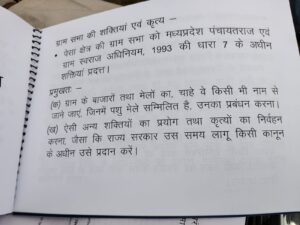 ग्राम सभा की शक्तियां एवं कृत्य –
• पेसा क्षेत्र की ग्राम सभा को मध्यप्रदेश पंचायतराज एवं
ग्राम स्वराज अधिनियम, 1993 की धारा 7 के अधीन
शक्तियां प्रदत्त।
प्रमुखतः -
(क) ग्राम के बाजारों तथा मेलों का, चाहे वे किसी भी नाम से
जाने जाएं, जिनमें पशु मेले सम्मिलित है, उनका प्रबंधन करना।
(ख) ऐसी अन्य शक्तियों का प्रयोग तथा कृत्यों का निर्वहन
करना, जैसा कि राज्य सरकार उस समय लागू किसी कानून
के अधीन उसे प्रदान करें।